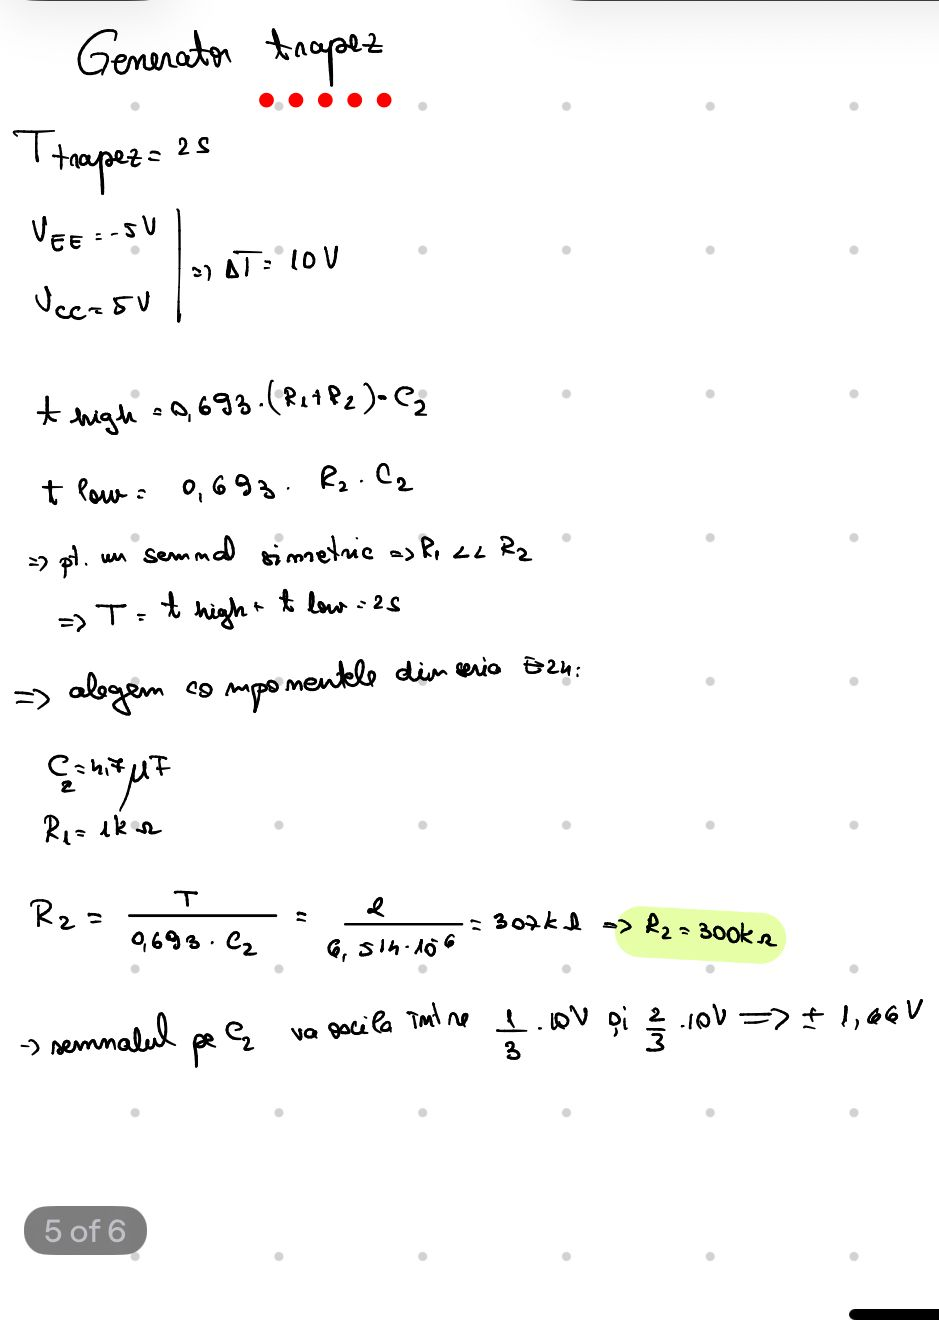 Generator trapez
T trapez = 2 s
V EE = -5 V
V CC = 5 V
=> ΔT = 10 V
t high = 0,693 · (R1 + R2) · C2
t low = 0,693 · R2 · C2
=> pt. un semnal simetric => R1 << R2
=> T = t high + t low = 2s
=> alegem componentele din seria E24:
C2 = 4,7 μF
R1 = 1k Ω
R2 = T / 0,693 · C2 = 2 / 6,514 · 10^6 = 307k Ω => R2 = 300k Ω
-> semnalul pe C2 va oscila între 1/3 · 10V și 2/3 · 10V => ± 1,66 V
5 of 6